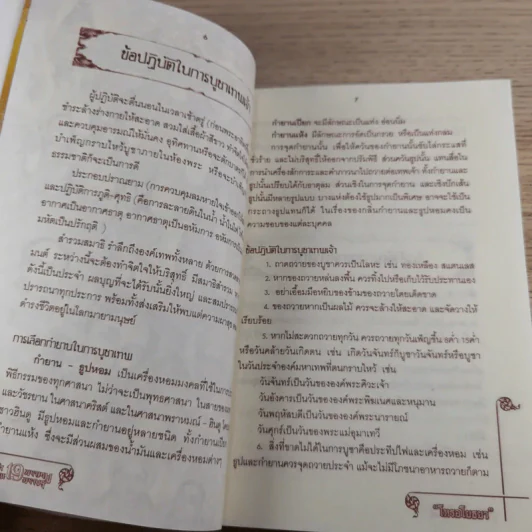 ๖
ข้อปฏิบัติในการบูชาเทพเจ้า
ผู้ปฏิบัติจะตื่นนอนในเวลาเช้าตรู่ (ก่อนพระอาทิตย์
ชำระล้างร่างกายให้สะอาด สวมใส่เสื้อผ้าสีขาว
และควบคุมอารมณ์ให้มั่นคง อุทิศทานหรือจะตัก
บำเพ็ญทุกรบไหว้บูชาภายในห้องพระ หรือจะ
ธรรมชาติก็จะเป็นการดี
ประกอบปราณยาม (การควบคุมลมหายใจ
และปฏิบัติการภูติ-ศุทธิ (คือการละลายดินในน้ำ น้ำในไฟ
อากาศเป็นอากาศธาตุ อากาศธาตุเป็นอหังการ อหังการ
มหัตเป็นปรักฤติ )
สำรวมสมาธิ รำลึกถึงองค์เทพทั้งหลาย ด้วยการสวด
มนต์ ระหว่างนี้จะต้องทำจิตใจให้บริสุทธิ์ มีสมาธิ
ดังนี้เป็นประจำ ผลบุญที่จะได้รับนั้นยิ่งใหญ่ และสมปรารถ
ปรารถนาทุกประการ พร้อมทั้งส่งเสริมให้พบแต่ความผาสุก
ดำรงชีวิตอยู่ในโลกมายามนุษย์
การเลือกกำยานในการบูชาเทพเจ้า
กำยาน - ธูปหอม เป็นเครื่องหอมมงคลที่ใช้ในการ
พิธีกรรมของทุกศาสนา ไม่ว่าจะเป็นพุทธศาสนา ในสาย
และวัชรยาน ในศาสนาคริสต์ และในศาสนาพราหมณ์ - ฮินดู
ชาวฮินดู มีธูปหอมและกำยานอยู่หลายชนิด ทั้งกำยาน
กำยานแห้ง ซึ่งจะมีส่วนผสมของน้ำมันและเครื่องหอมต่างๆ
๗
กำยานเปียก จะมีลักษณะเป็นแท่ง อ่อนนิ่ม
กำยานแห้ง มีลักษณะการอัดเป็นกรวย หรือเป็นแท่งกลม
การจุดกำยานนั้น เพื่อให้ควันของกำยานนั้นขับไล่กระแสที่
ชั่วร้าย และไม่บริสุทธิ์ให้ออกจากปริมพิธี ส่วนควันธูปนั้น แทนสื่อใน
การนำเครื่องสักการะและคำภาวนาไปถวายต่อเทพเจ้า ทั้งกำยานและ
ธูปนั้นเปรียบกับธาตุลม ส่วนเชิงในการจุดกำยาน และเชิงปักเส้น
ธูปนั้นมีหลายรูปแบบ บางแห่งต้องใช้ธูปดอกใหญ่เป็นพิเศษ อาจจะใช้เป็น
กระถางธูปแทนก็ได้ ในเรื่องของกลิ่นกำยานและธูปหอมคงเป็น
ความชอบของแต่ละบุคคล
ข้อปฏิบัติในการบูชาเทพเจ้า
1. ถาดถวายของบูชาควรเป็นโลหะ เช่น ทองเหลือง สแตนเลส
2. หากของถวายหล่นลงพื้น ควรทิ้งไปหรือเก็บไว้รับประทานเอง
3. อย่าเอื้อมมือหยิบของข้ามของถวายโดยเด็ดขาด
4. ของถวายหากเป็นผลไม้ ควรจะล้างให้สะอาด และจัดวางให้
เรียบร้อย
5. หากไม่สะดวกถวายทุกวัน ควรถวายทุกวันเพ็ญขึ้น ๘ค่ำ ๑๕ค่ำ
หรือวันคล้ายวันเกิดตน เช่น เกิดวันจันทร์ก็บูชาวันจันทร์หรือบูชา
ในวันประจำองค์มหาเทพที่ตนกราบไหว้ เช่น
วันจันทร์เป็นวันขององค์พระศิวะเจ้า
วันอังคารเป็นวันขององค์พระพิฆเนศและหนุมาน
วันพฤหัสบดีเป็นวันขององค์พระนารายณ์
วันศุกร์เป็นวันของพระแม่อุมาเทวี
6. สิ่งที่ขาดไม่ได้ในการบูชาคือประทีปไฟและเครื่องหอม เช่น
ธูปและกำยานควรจุดถวายประจำ แม้จะไม่มีโภชนาอาหารถวายก็ตาม